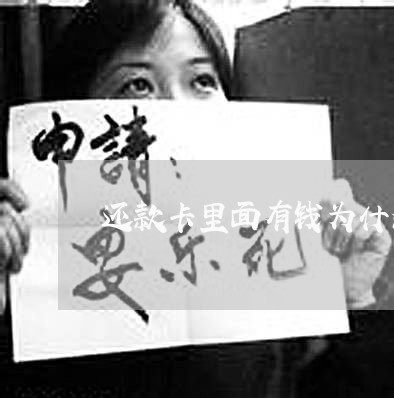 申請：
还款卡里面有钱为什
乐